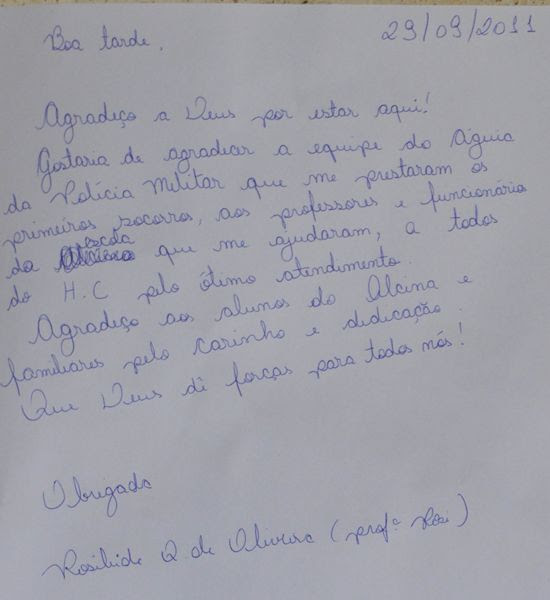 29/09/2011
Boa tarde,
Agradeço a Deus por estar aqui!
Gostaria de agradecer a equipe do Águia
da Polícia Militar que me prestaram os
primeiros socorros, aos professores e funcionários
da escola que me ajudaram, a todos
do H.C pelo ótimo atendimento.
Agradeço aos alunos do Alcina e
familiares pelo carinho e dedicação.
Que Deus dê forças para todos nós!
Obrigada
Rosileide Q. de Oliveira (profª Rosi)